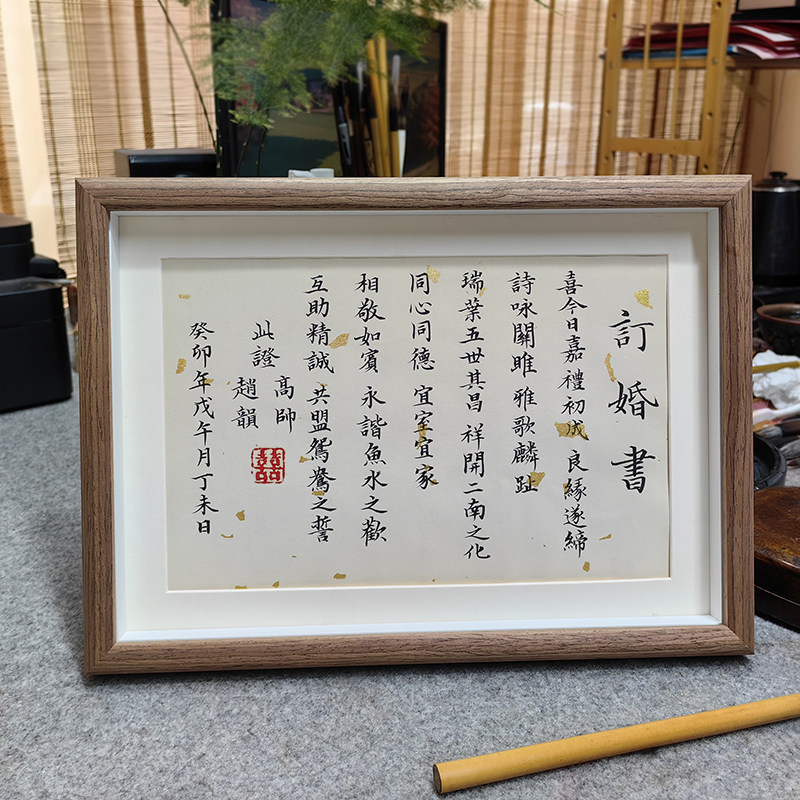 訂婚書
喜今日嘉禮初成 良緣遂締
詩咏關雎 雅歌麟趾
瑞葉五世其昌 祥開二南之化
同心同德 宜室宜家
相敬如賓 永諧魚水之歡
互助精誠 共盟鴛鴦之誓
此證
高帥
趙韻
囍
癸卯年戊午月丁未日